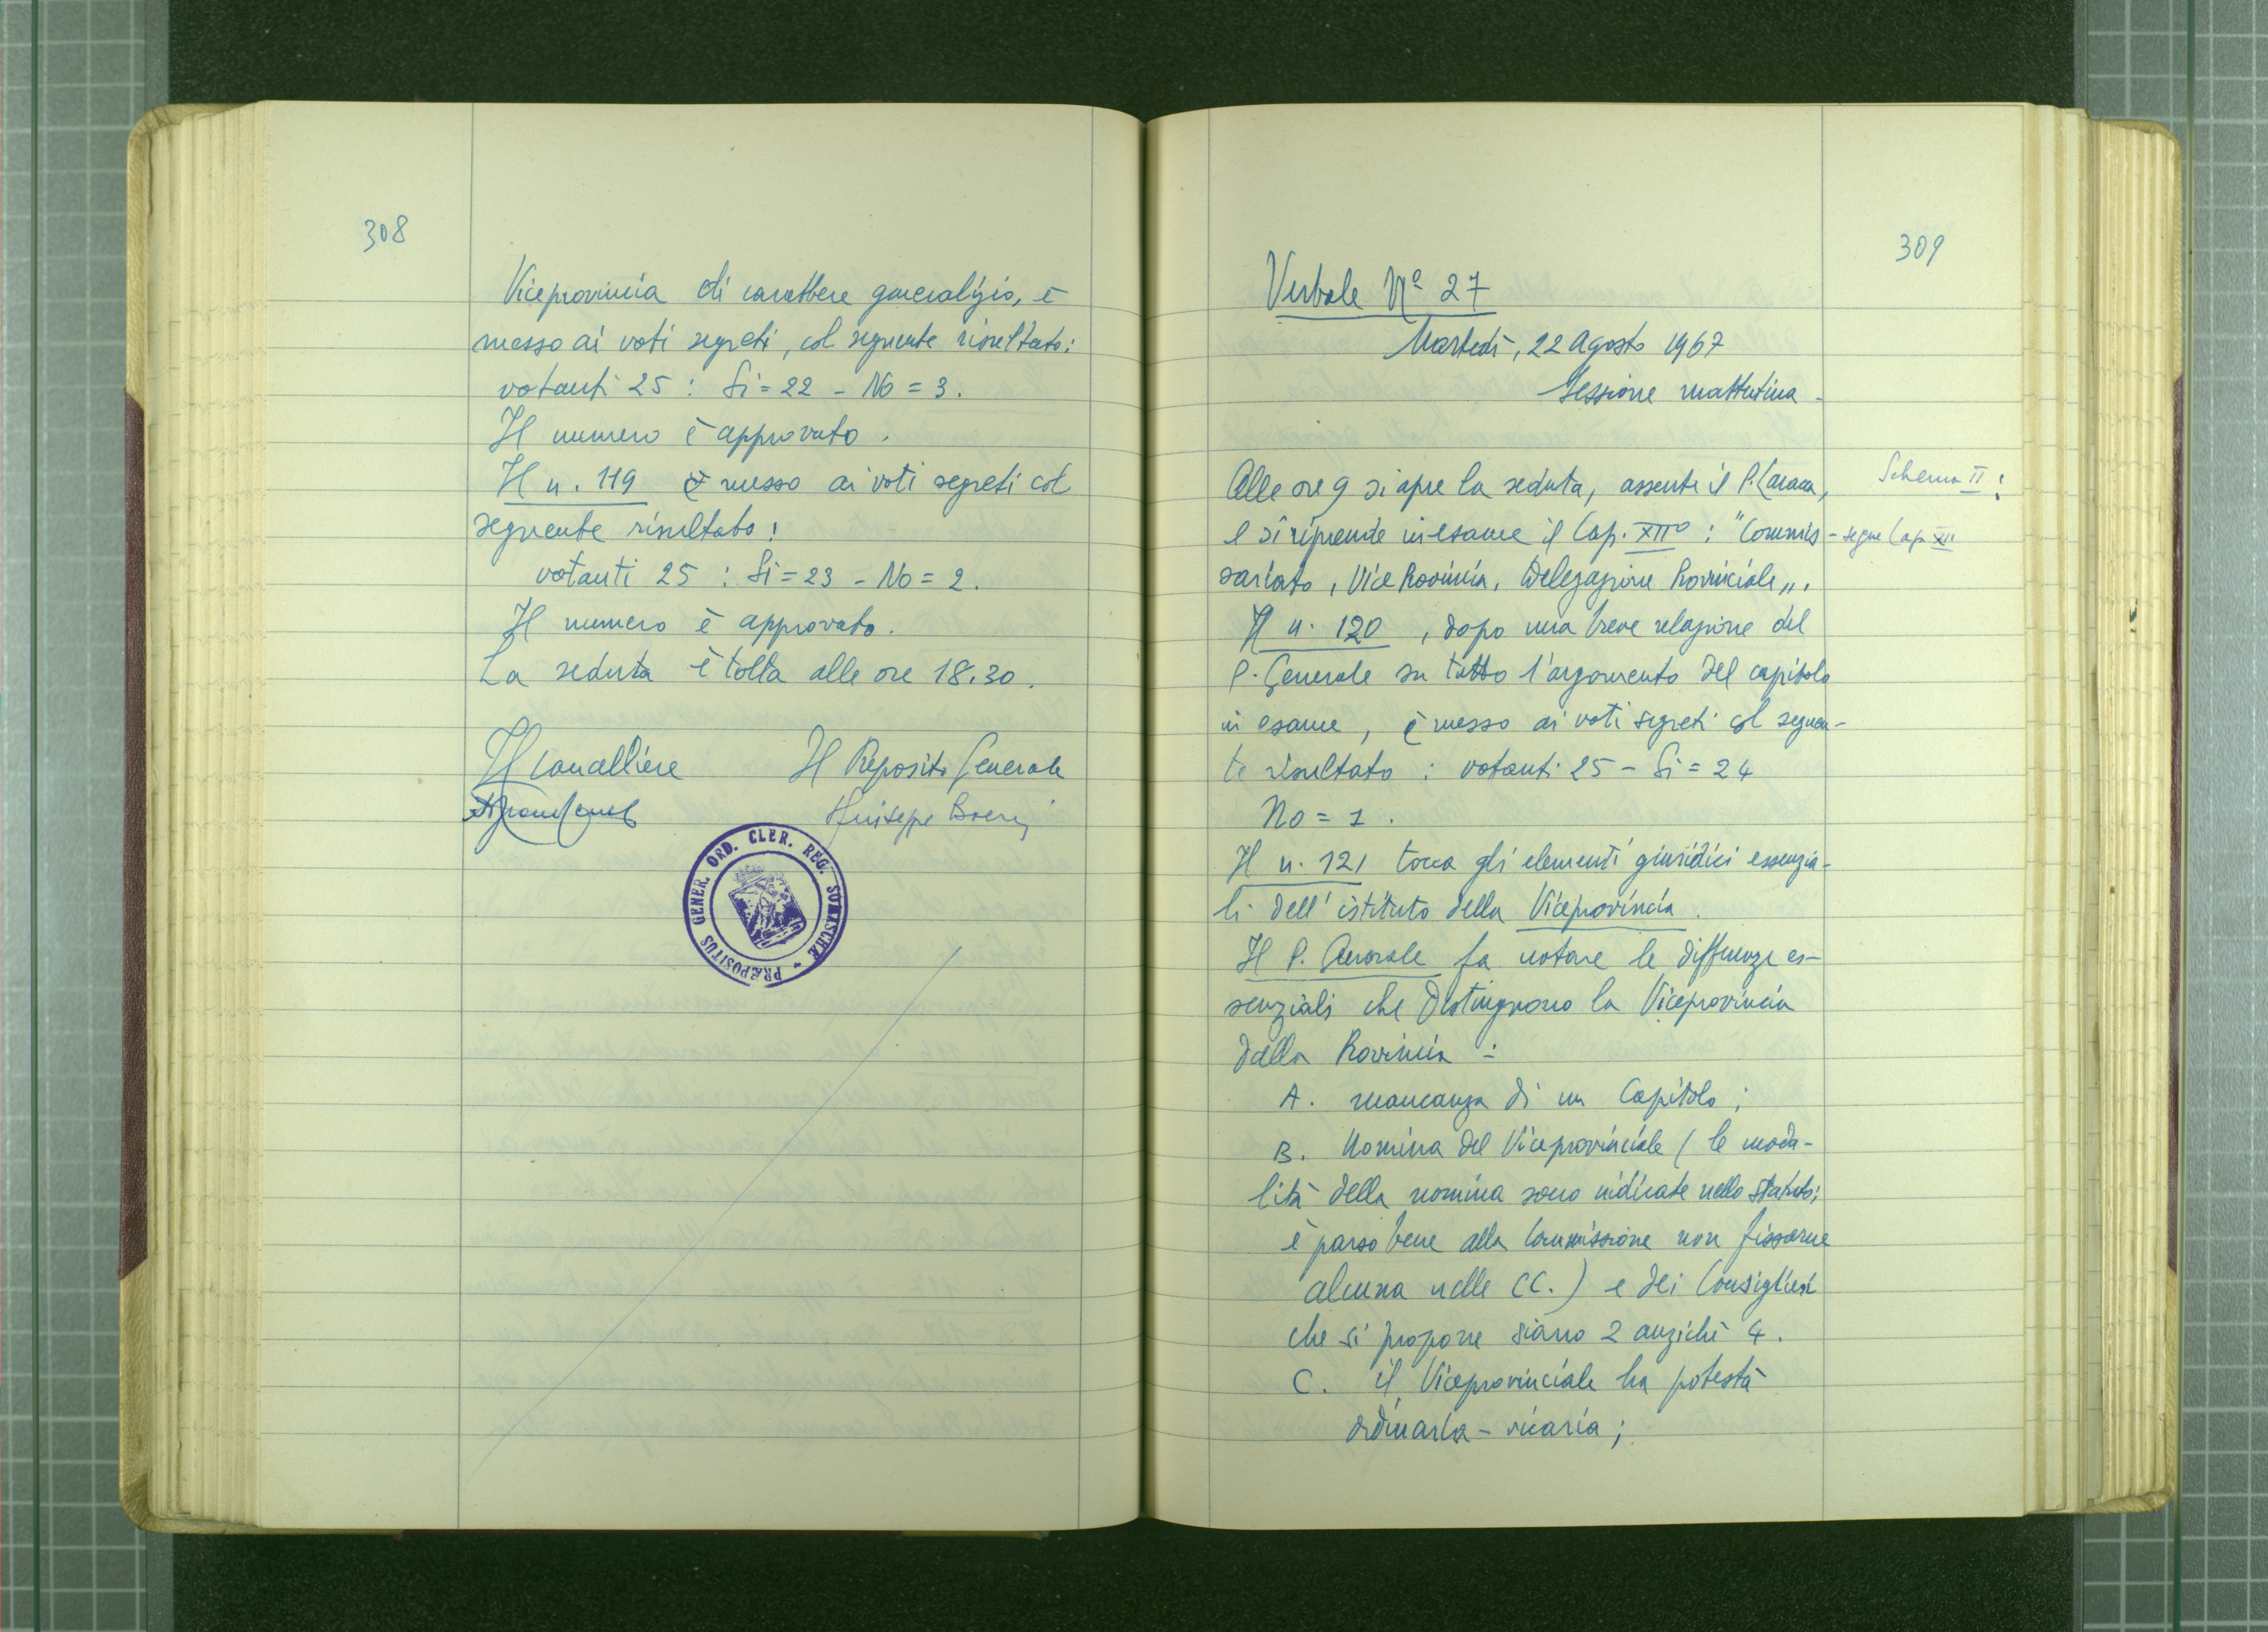 308
Viceprovincia di carattere generalizio, è
messo ai voti segreti, col seguente risultato:
votanti 25 : Si = 22 - No = 3.
Il numero è approvato.
Il n. 119 è messo ai voti segreti col
seguente risultato:
votanti 25 : Si = 23 - No = 2.
Il numero è approvato.
La seduta è tolta alle ore 18.30.
Il Cancelliere Il Preposito Generale
Giuseppe Boeri
PRÆPOSITUS GENER. ORD. CLER. REG. SOMASCHÆ -
309
Verbale Nº 27
Martedì, 22 Agosto 1967
Sessione mattutina -
Alle ore 9 si apre la seduta, assente il P.
Schema II:
e si riprende in esame il Cap. XIIº : "Commis-
segue Cap. XII
sariato, Vice Provincia, Delegazione Provinciale".
Il n. 120, dopo una breve relazione del
P. Generale su tutto l'argomento del capitolo
in esame, è messo ai voti segreti col seguen-
te risultato : votanti 25 - Si = 24
No = 1.
Il n. 121 tocca gli elementi giuridici essenzia-
li dell'istituto della Viceprovincia.
Il P. Generale fa notare le differenze es-
senziali che distinguono la Viceprovincia
dalla Provincia :
A. mancanza di un Capitolo;
B. Nomina del Viceprovinciale (le moda-
lità della nomina sono indicate nello statuto;
è parso bene alla Commissione non fissarne
alcuna nelle CC.) e dei Consiglieri
che si propone siano 2 anzichè 4.
C. il Viceprovinciale ha potestà
ordinaria - vicaria;